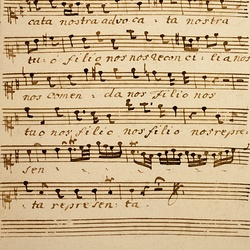 cata nostra advoca - ta nostra
tu - o filio nos nos reconcilia nos
nos comen - da nos filio nos
tuo nos filio nos filio nos repre
sen
ta represen - ta.